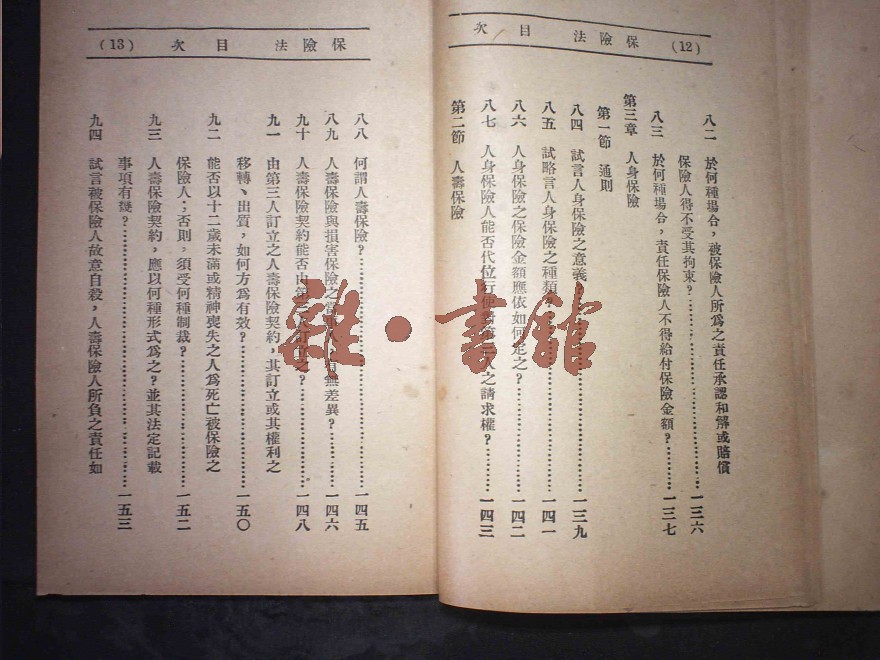 保險法 目次 (12)
八二 於何種場合，被保險人所爲之責任承認和解或賠償
保險人得不受其拘束？……一三六
八三 於何種場合，責任保險人不得給付保險金額？……一三七
第三章 人身保險
第一節 通則
八四 試言人身保險之意義……一三九
八五 試略言人身保險之種類？……一四一
八六 人身保險之保險金額應依如何定之？……一四二
八七 人身保險人能否代位行使 人之請求權？……一四三
第二節 人壽保險
保險法 目次 (13)
八八 何謂人壽保險？……一四五
八九 人壽保險與損害保險之 有無差異？……一四六
九十 人壽保險契約能否由第三人訂立之？……一四八
九一 由第三人訂立之人壽保險契約，其訂立或其權利之
移轉、出質，如何方爲有效？……一五〇
九二 能否以十二歲未滿或精神喪失之人爲死亡被保險之
保險人；否則，須受何種制裁？……一五二
九三 人壽保險契約，應以何種形式爲之？並其法定記載
事項有幾？……一五三
九四 試言被保險人故意自殺，人壽保險人所負之責任如
雜·書館